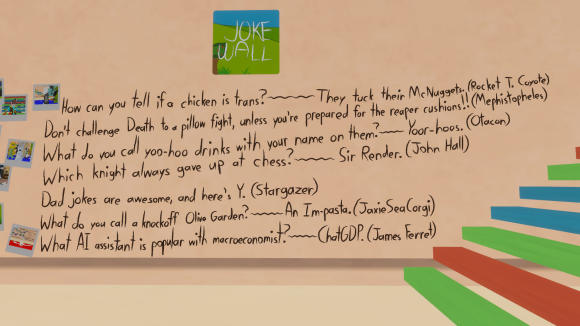 JOKE
WALL
How can you tell if a chicken is trans?~~~~~They tuck their McNuggets. (Rocket T. Coyote)
Don't challenge Death to a pillow fight, unless you're prepared for the reaper cushions!! (Mephistopheles)
What do you call yoo-hoo drinks with your name on them?~~~Yoor-hoos. (Otacon)
Which knight always gave up at chess?~~~~Sir Render. (John Hall)
Dad jokes are awesome, and here's Y. (Stargazer)
What do you call a knockoff Olive Garden?~~~~An Im-pasta. (JaxieSeaCorgi)
What AI assistant is popular with macroeconomist?~~~~ChatGDP. (James Ferret)